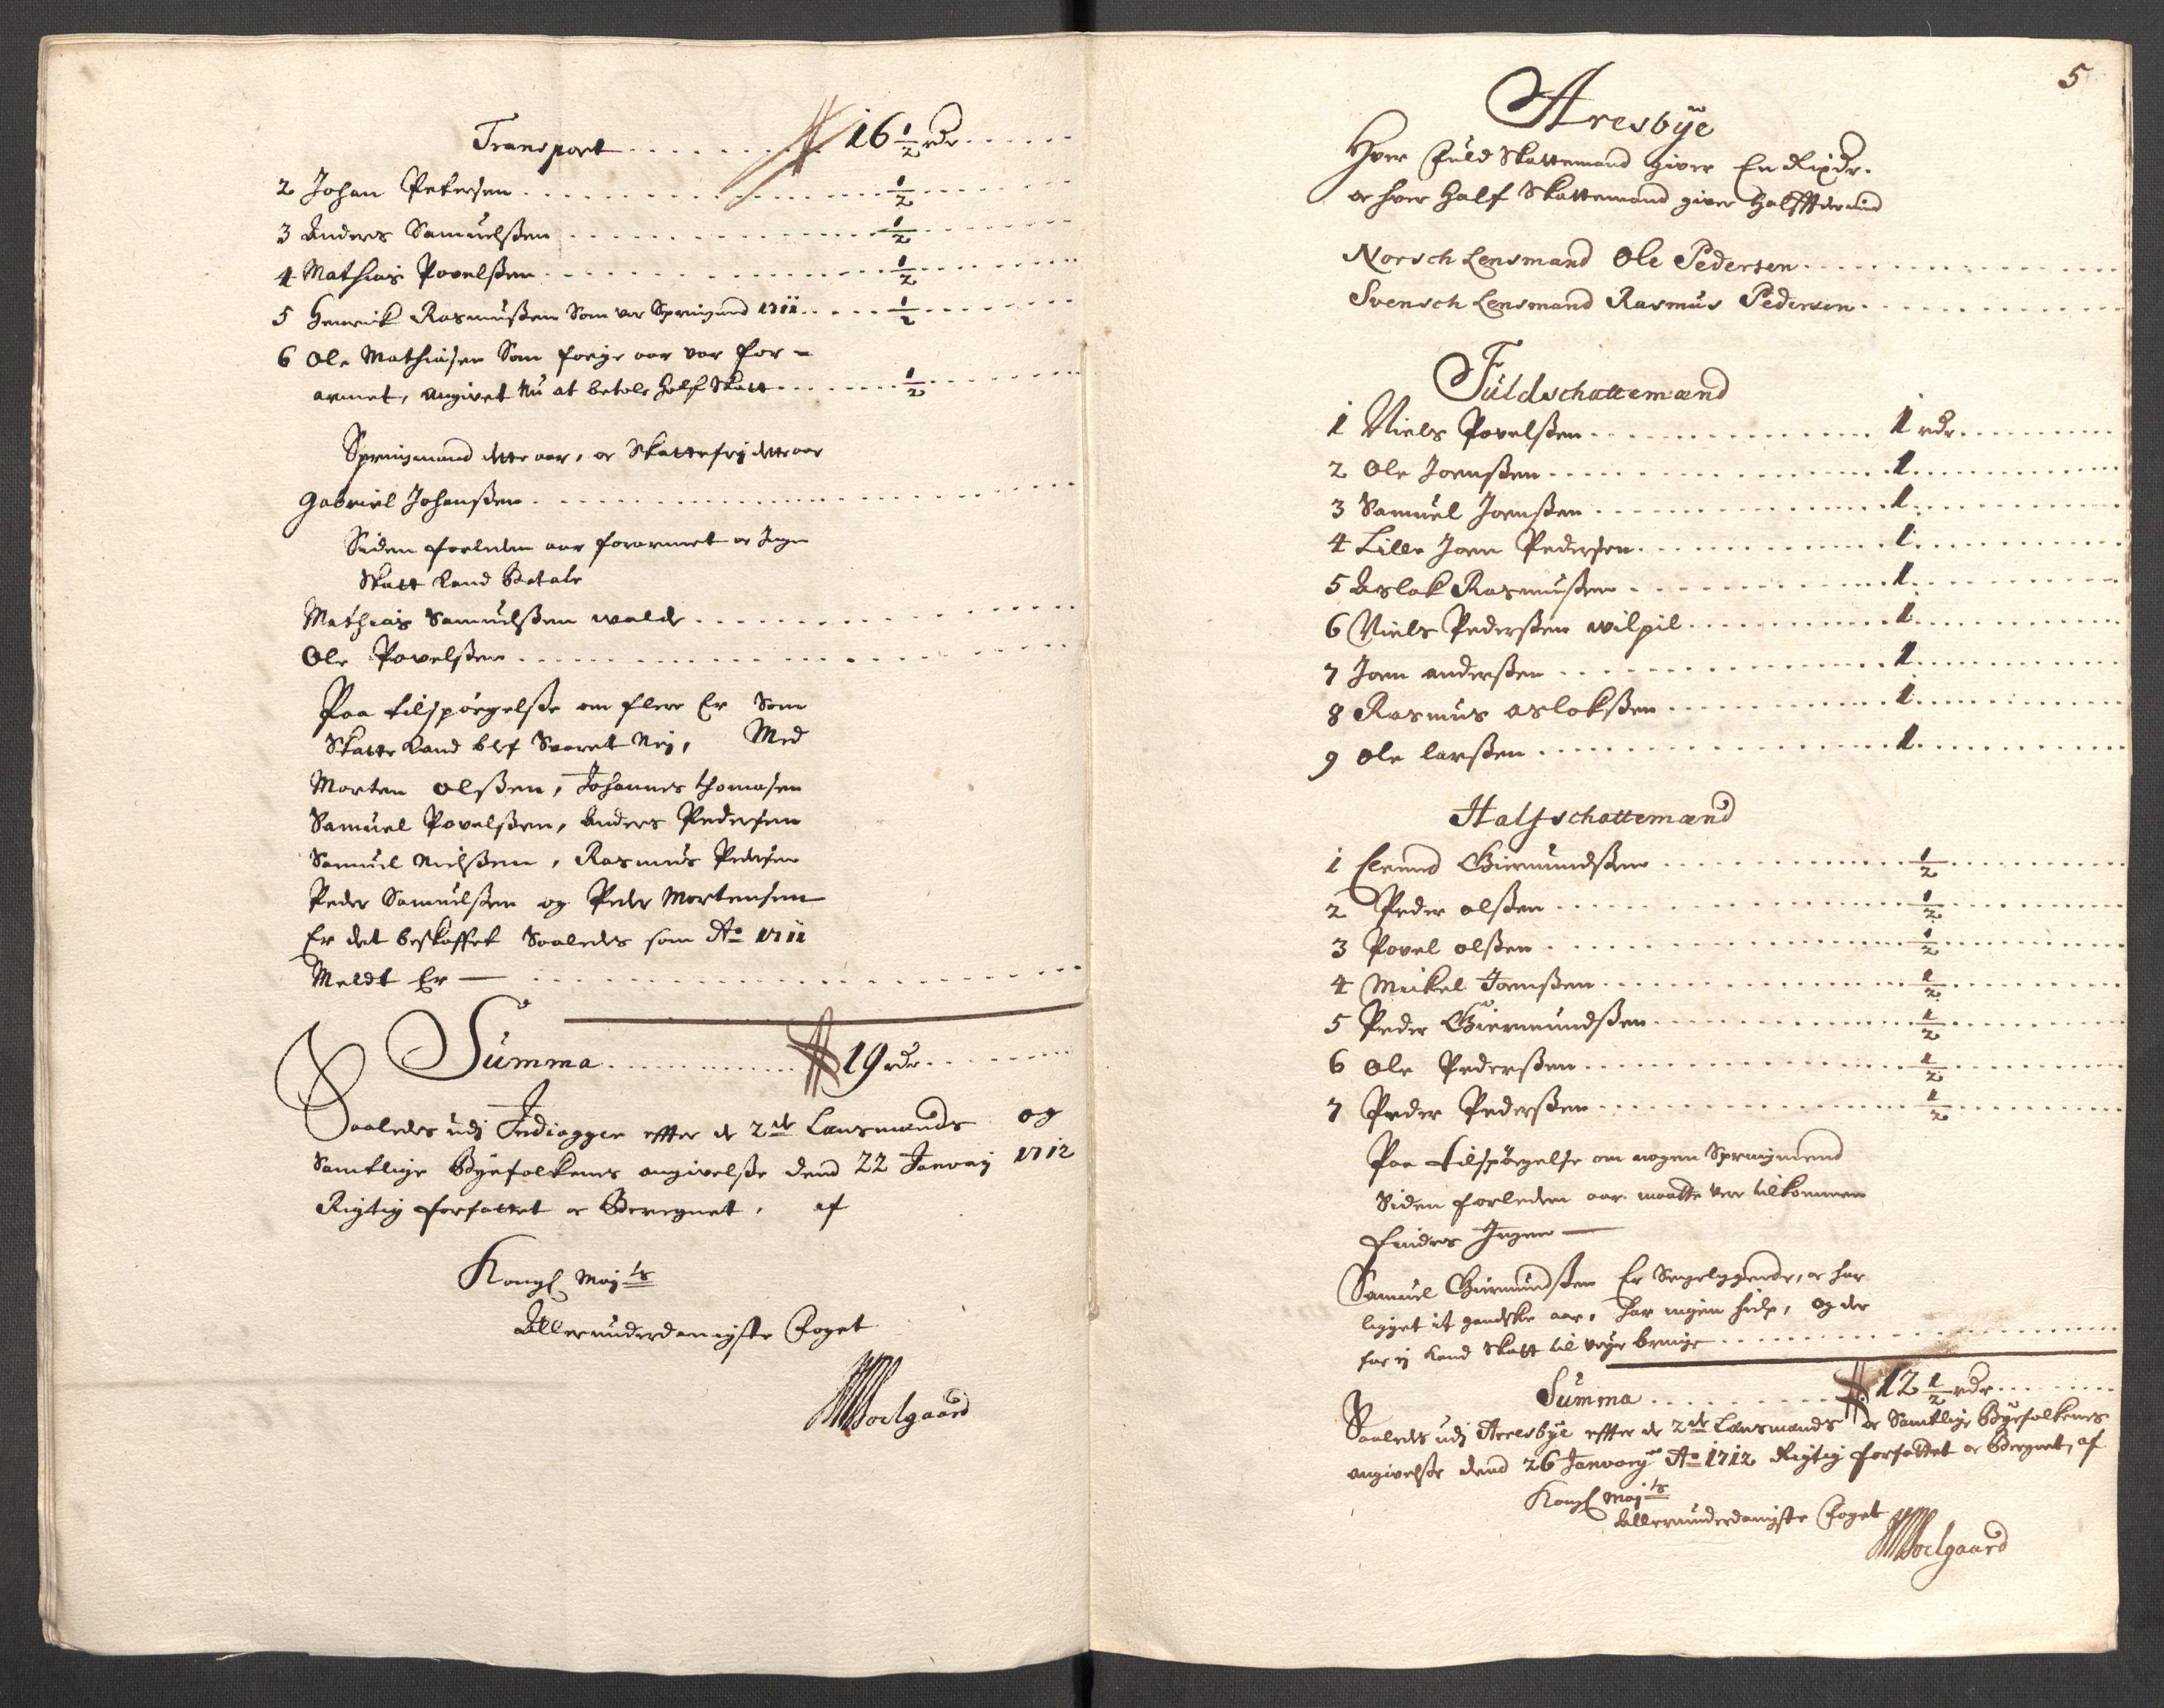 Transport . . . . . . . . 16 1/2 rdr . . . .
2 Johan Petersen . . . . . . . . 1/2 . . . .
3 Anders Samuelsßen . . . . . . . . 1/2 . . . .
4 Mathias Povelsßen . . . . . . . . 1/2 . . . .
5 Henrick Rasmusßen Som var Springmd 1711 . . . . 1/2 . . . .
6 Ole Mathiasen Som forige aar var for-
armet, angivet Nu at betale half Skatt . . . . 1/2 . . . .
Springmand dette aar, er Skattefrj dette aar
Gabriel Johansßen . . . . . . . .
Siden forleden aar forarmet or Ingen
Skatt kand Betale
Mathias Samuelsßen walde . . . . . . . .
Ole Povelsßen . . . . . . . .
Paa tilspørgelsße om flere Er Som
Skatte kand blef Svaret Nej, Med
Morten olsßen, Johannes thomasen
Samuel Povelsßen, Anders Pedersen
Samuel Nielsßen, Rasmus Pedersen
Peder Samuelsßen og Peder Mortensen
Er det beskaffet Saaledes som Ao 1711
Meldt Er — . . . . . . . .
Summa . . . . . . . . 19 rdr . . . .
Saaledes udj Indiagger effter de 2de Lensmænds og
Samtlige Byefolkenes angivelsße dend 22 Janvarj 1712
Rigtig forfattet or Beregnet, af
Kongl Mayts
Allerunderdanigste Foget
Soelgaard
5
Aresbÿe
Hver Fuld Skattemand giver En Rixdr.
or hver Half Skattemand giver Halff
Norsch Lensmand Ole Pedersen . . . . . . . .
Svensch Lensmand Rasmus Pedersen . . . . . . . .
Fuldschattemænd
1 Niels Povelsßen . . . . . . . . 1 rdr . . . .
2 Ole Joensßen . . . . . . . . 1 . . . .
3 Samuel Joensßen . . . . . . . . 1 . . . .
4 Lille Joen Pedersen . . . . . . . . 1 . . . .
5 Aslak Rasmusßen . . . . . . . . 1 . . . .
6 Niels Pedersßen wilpil . . . . . . . . 1 . . . .
7 Joen andersßen . . . . . . . . 1 . . . .
8 Rasmus aslaksßen . . . . . . . . 1 . . . .
9 Ole larsßen . . . . . . . . 1 . . . .
Halfschattemænd
1 Giermundsßen . . . . . . . . 1/2 . . . .
2 Peder olsßen . . . . . . . . 1/2 . . . .
3 Povel olsßen . . . . . . . . 1/2 . . . .
4 Mickel Joensßen . . . . . . . . 1/2 . . . .
5 Peder Giermundsßen . . . . . . . . 1/2 . . . .
6 Ole Pedersßen . . . . . . . . 1/2 . . . .
7 Peder Pedersßen . . . . . . . . 1/2 . . . .
Paa tilspørgelse om nogen Springmend
Siden forleden aar maatte vere tilkommen
findes Ingen —
Samuel Giermundsßen Er Sengeliggende, or har
ligget it gandske aar, har ingen hielp, og der
for ej kand Skatt til veye bringe . . . . . . . .
Summa . . . . . . . . 12 1/2 rdr . . . .
Saaledes udj Aresbÿe effter de 2de Lensmænds or Samtlige Byefolkenes
angivelsße dend 26 Janvarij Ao 1712 Rigtig forfattet or Beregnet, af
Kongl Mayts
Allerunderdanigste Foget
Soelgaard